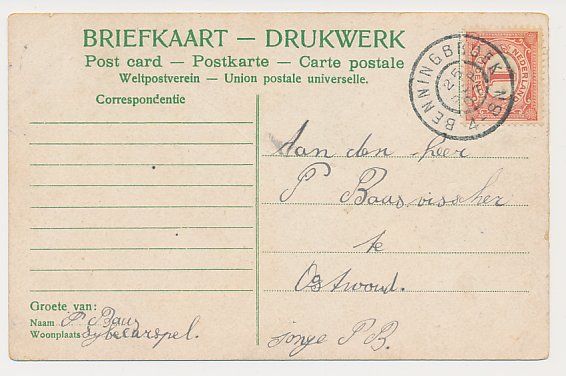 BRIEFKAART — DRUKWERK
Post card — Postkarte — Carte postale
Weltpostverein — Union postale universelle.
Correspondentie
BENNINGBROEK
NEDERLAND
1
CENT
4
Aan den heer
P Baas visscher
te
Ostwoud.
Groete van:
Naam P
Woonplaats Sybecarspel.
jonge P B.